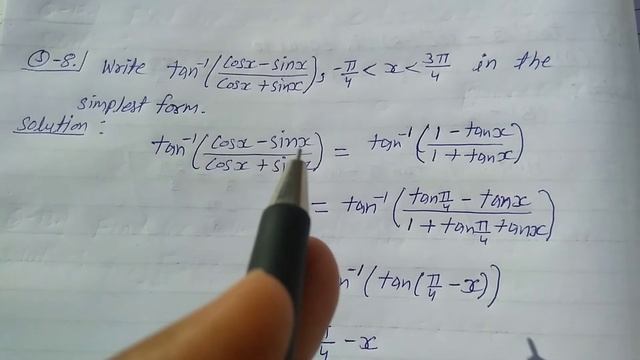 Q-8. Write tan⁻¹((cosx - sinx)/(cosx + sinx)), -π/4 < x < 3π/4 in the
simplest form.
Solution:
tan⁻¹((cosx - sinx)/(cosx + si)) = tan⁻¹((1 - tanx)/(1 + tanx))
= tan⁻¹((tanπ/4 - tanx)/(1 + tanπ/4 tanx))
n⁻¹(tan(π/4 - x))
π/4 - x